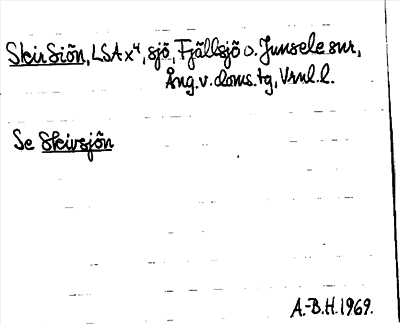 Skir Siön, LSA x⁴, sjö, Fjällsjö o. Junsele snr,
Ång. v. doms. tg, Vrnl. l.
Se Skirsjön
A.-B.H. 1969.